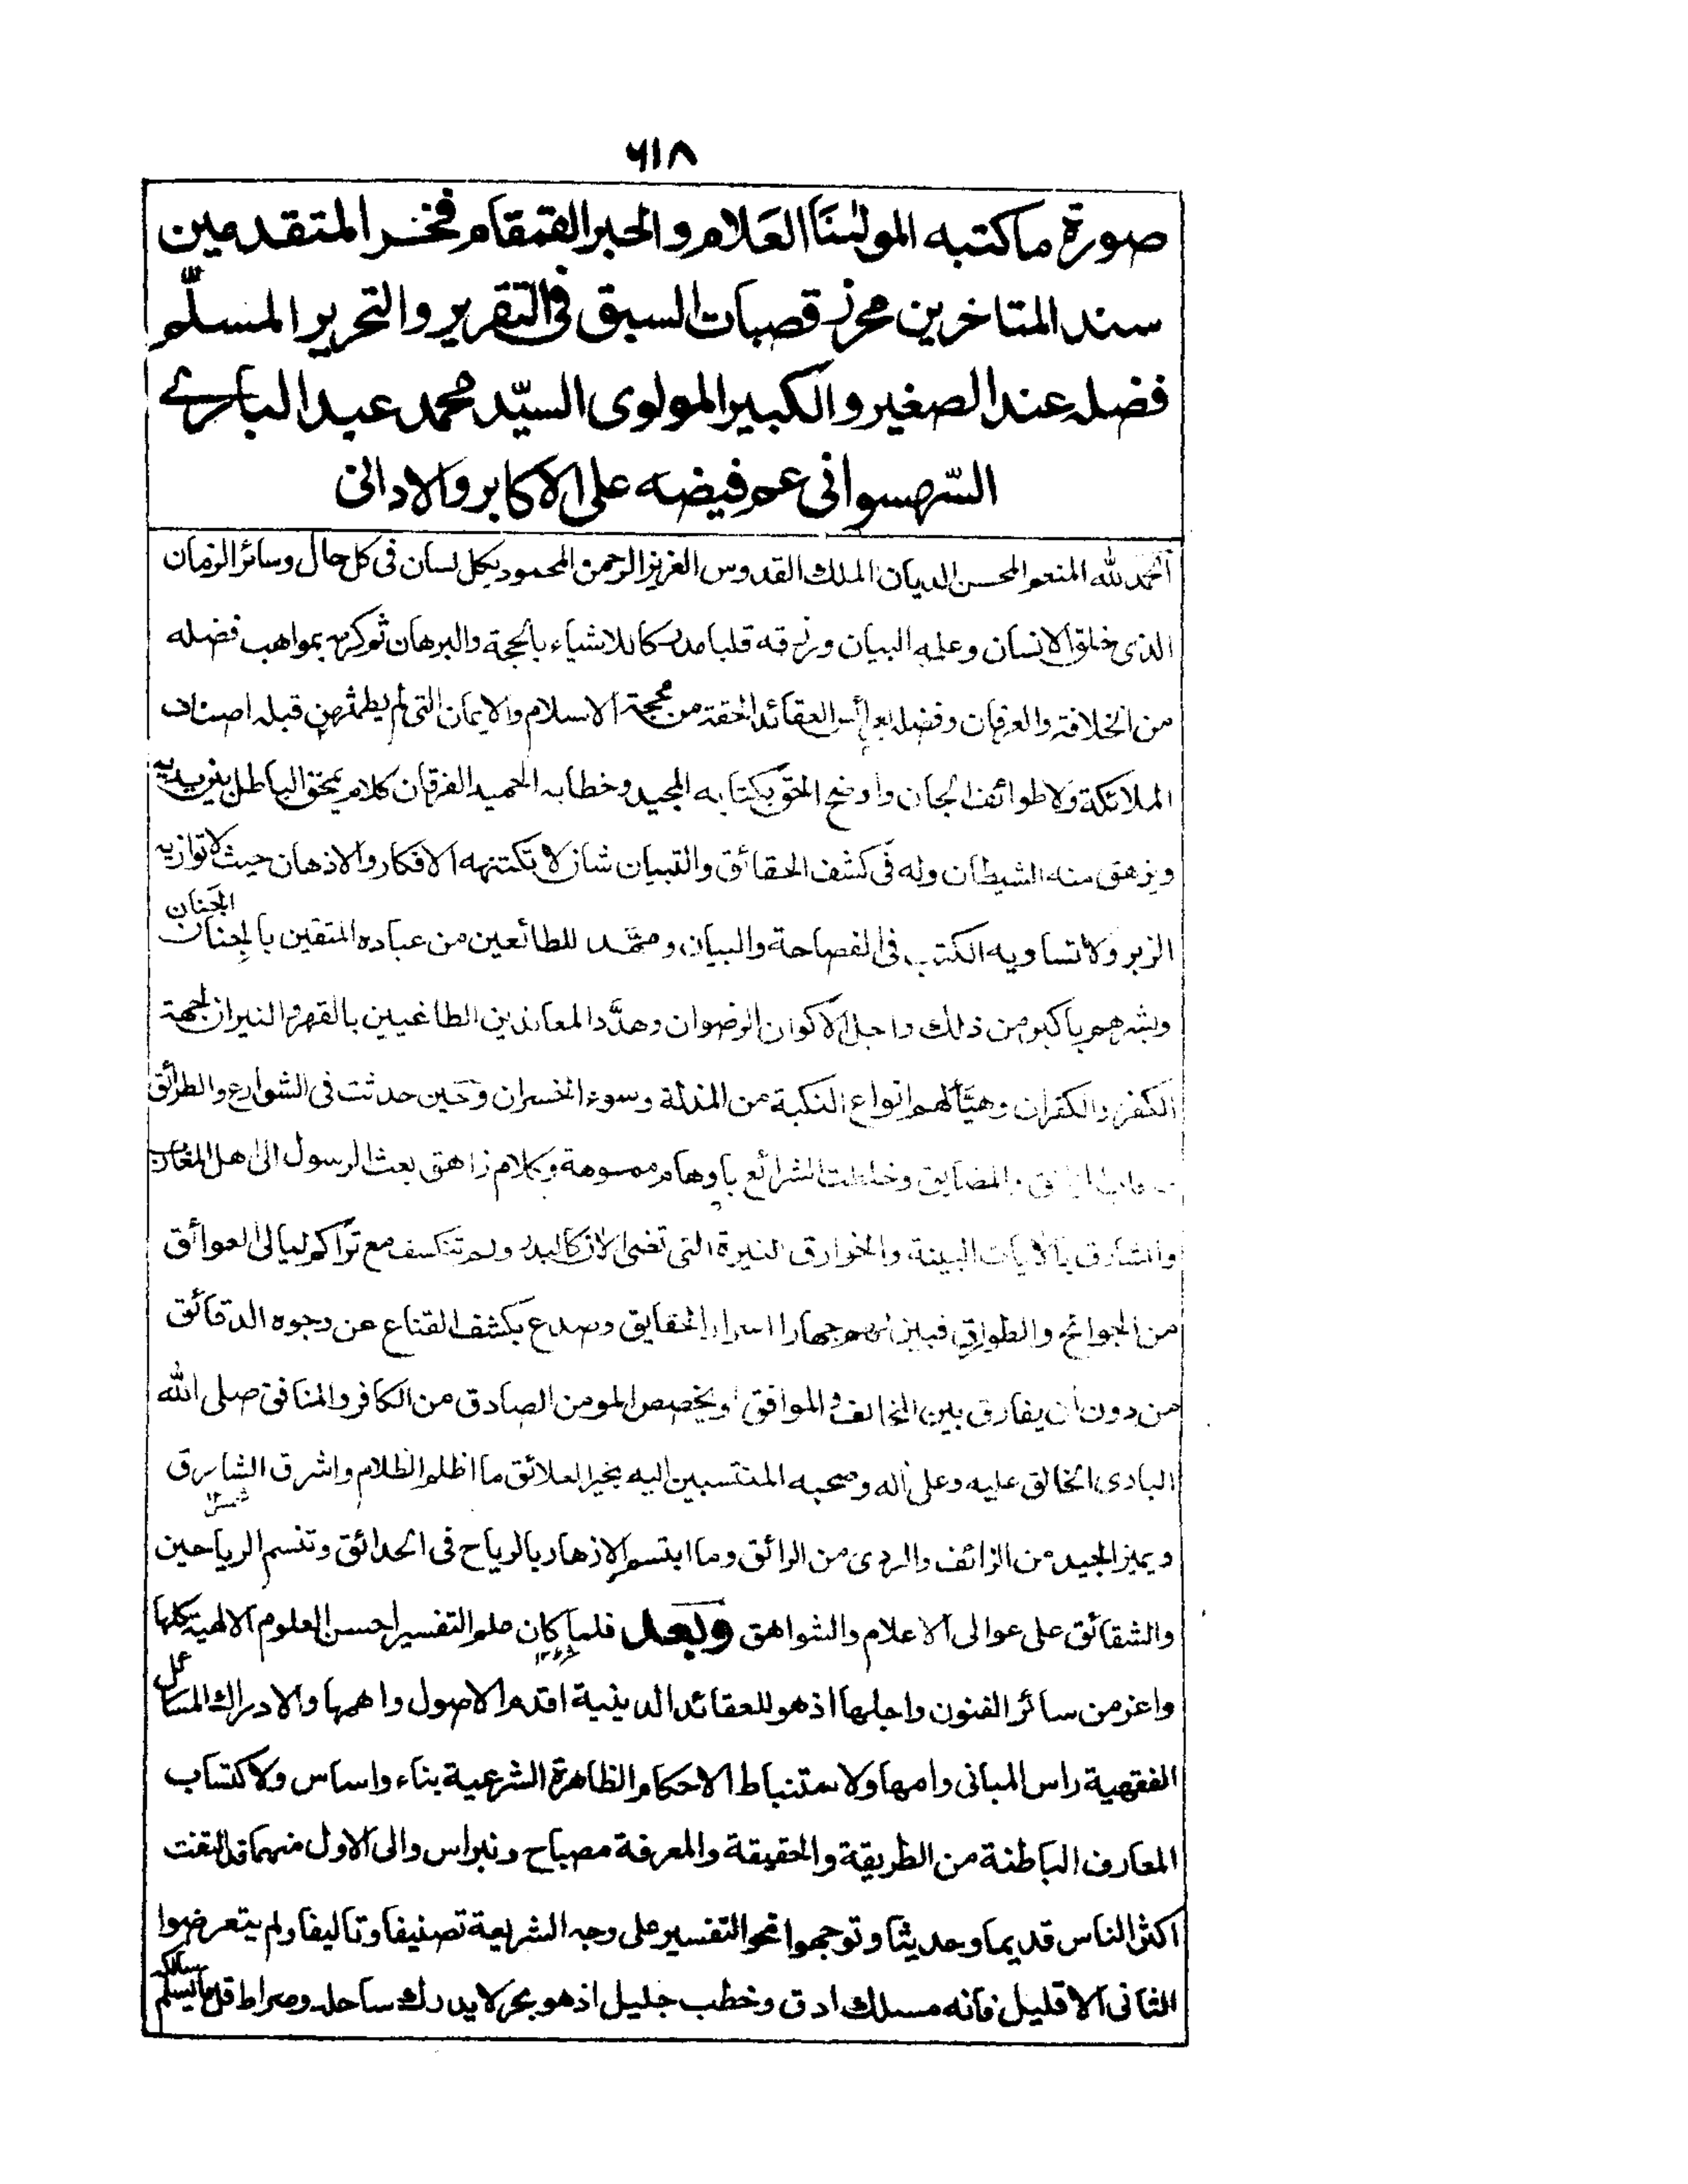 ۶۱۸
صورة ما كتبه المولىٰنا العلام والحبر القمقام فخر المتقدمين
سند المتاخرين محرز قصبات السبق فى التقرير والتحرير المسلّم
فضله عند الصغير والكبير المولوى السيّد محمد عبد البارے
السّهسوانى عم فيضه على الاكابر والادانى
الحمد لله المنعم المحسن الديان الملك القدوس العزيز الرحمن المحمود بكل لسان فى كل حال وسائر الزمان
الذى خلق الانسان وعلمه البيان ورزقه قلبا مدركا للاشياء بالحجة والبرهان ثم كرمه بمواهب فضله
من الخلافة والعرفان وفضله بعرائس العقائد الحقة من محجة الاسلام والايمان التى لم يطمثهن قبله اصناف
الملائكة ولا طوائف الجان واوضح الحق بكتابه المجيد وخطابه الحميد الفرقان كلام يمحق الباطل بين يديه
ويزهق منه الشيطان وله فى كشف الحقائق والتبيان شان لا تكتنهه الافكار والاذهان حيث لا توازيه
الزبر ولا تساويه الكتب فى الفصاحة والبيان ومهّد للطائعين من عباده المتقين بالجِنان الجَنان
وبشرهم باكبر من ذلك واجل الاكوان الرضوان وهدّد المعاندين الطاغيين بالقهر والنيران لجهة
الكفر والكفران وهيّأ لهم انواع النكبة من المذلة وسوء الخسران وحين حدثت فى الشوارع والطرائق
والمضايق وخلطت الشرائع باوهام مموهة وكلام زاهق بعث الرسول الى اهل المغارب
والمشارق بالايات البينة والخوارق النيرة التى تضئ الان كالبدر ولم تنكسف مع تراكم ليالى العوائق
من الجوائح والطوارق فبين لهم جهارا اسرار الحقايق وصدع بكشف القناع عن وجوه الدقائق
من دون ان يفارق بين المخالف والموافق او يخصص المومن الصادق من الكافر والمنافق صلى الله
البادى الخالق عليه وعلى أله وصحبه المنتسبين اليه بخير العلائق ما اظلم الظلام واشرق الشارق
ويميز الجيد من الزائف والردى من الرائق وما ابتسم الازهار بالرياح فى الحدائق وتنسم الرياحين
والشقائق على عوالى الاعلام والشواهق وبعد فلما كان علم التفسير احسن العلوم الالهية كلها
واعز من سائر الفنون واجلها اذ هو للعقائد الدينية اقدم الاصول واهمها والادراك المسائل
الفقهية راس المبانى وامها ولاستنباط الاحكام الظاهرة الشرعية بناء واساس ولاكتساب
المعارف الباطنة من الطريقة والحقيقة والمعرفة مصباح ونبراس والى الاول منهما قد التفت
اكثر الناس قديما وحديثا وتوجهوا نحو التفسير على وجه الشريعة تصنيفا وتاليفا ولم يتعرضوا
الثانى الا قليل فانه مسلك ادق وخطب جليل اذ هو بحر لا يدرك ساحله وصراط قل ما يسلم سالكه